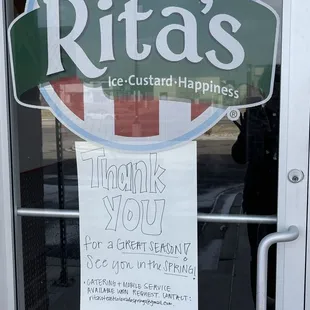 Rita's
Ice·Custard·Happiness
®
Thank
YOU
for a GREAT SEASON!
See you in the SPRING!
• CATERING + MOBILE SERVICE
AVAILABLE UPON REQUEST. CONTACT: